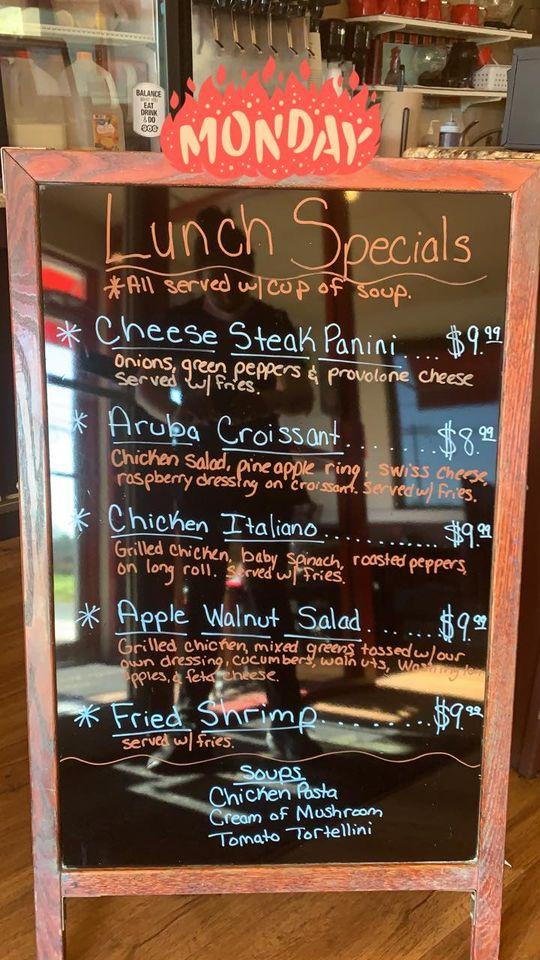 BALANCE
EAT
DRINK
& DO
MONDAY
Lunch Specials
*All served w/cup of soup.
* Cheese Steak Panini.... $9.99
onions, green peppers & provolone cheese
served w/ fries.
* Aruba Croissant....... $8.99
Chicken salad, pineapple ring, swiss cheese,
raspberry dressing on croissant. Served w/ fries.
* Chicken Italiano............ $9.99
Grilled chicken, baby spinach, roasted peppers,
on long roll. served w/ fries.
* Apple Walnut Salad....... $9.99
Grilled chicken, mixed greens tossed w/our
own dressing, cucumbers, walnuts, Washington
apples, & feta cheese.
* Fried Shrimp.......... $9.99
served w/ fries.
Soups
Chicken Pasta
Cream of Mushroom
Tomato Tortellini